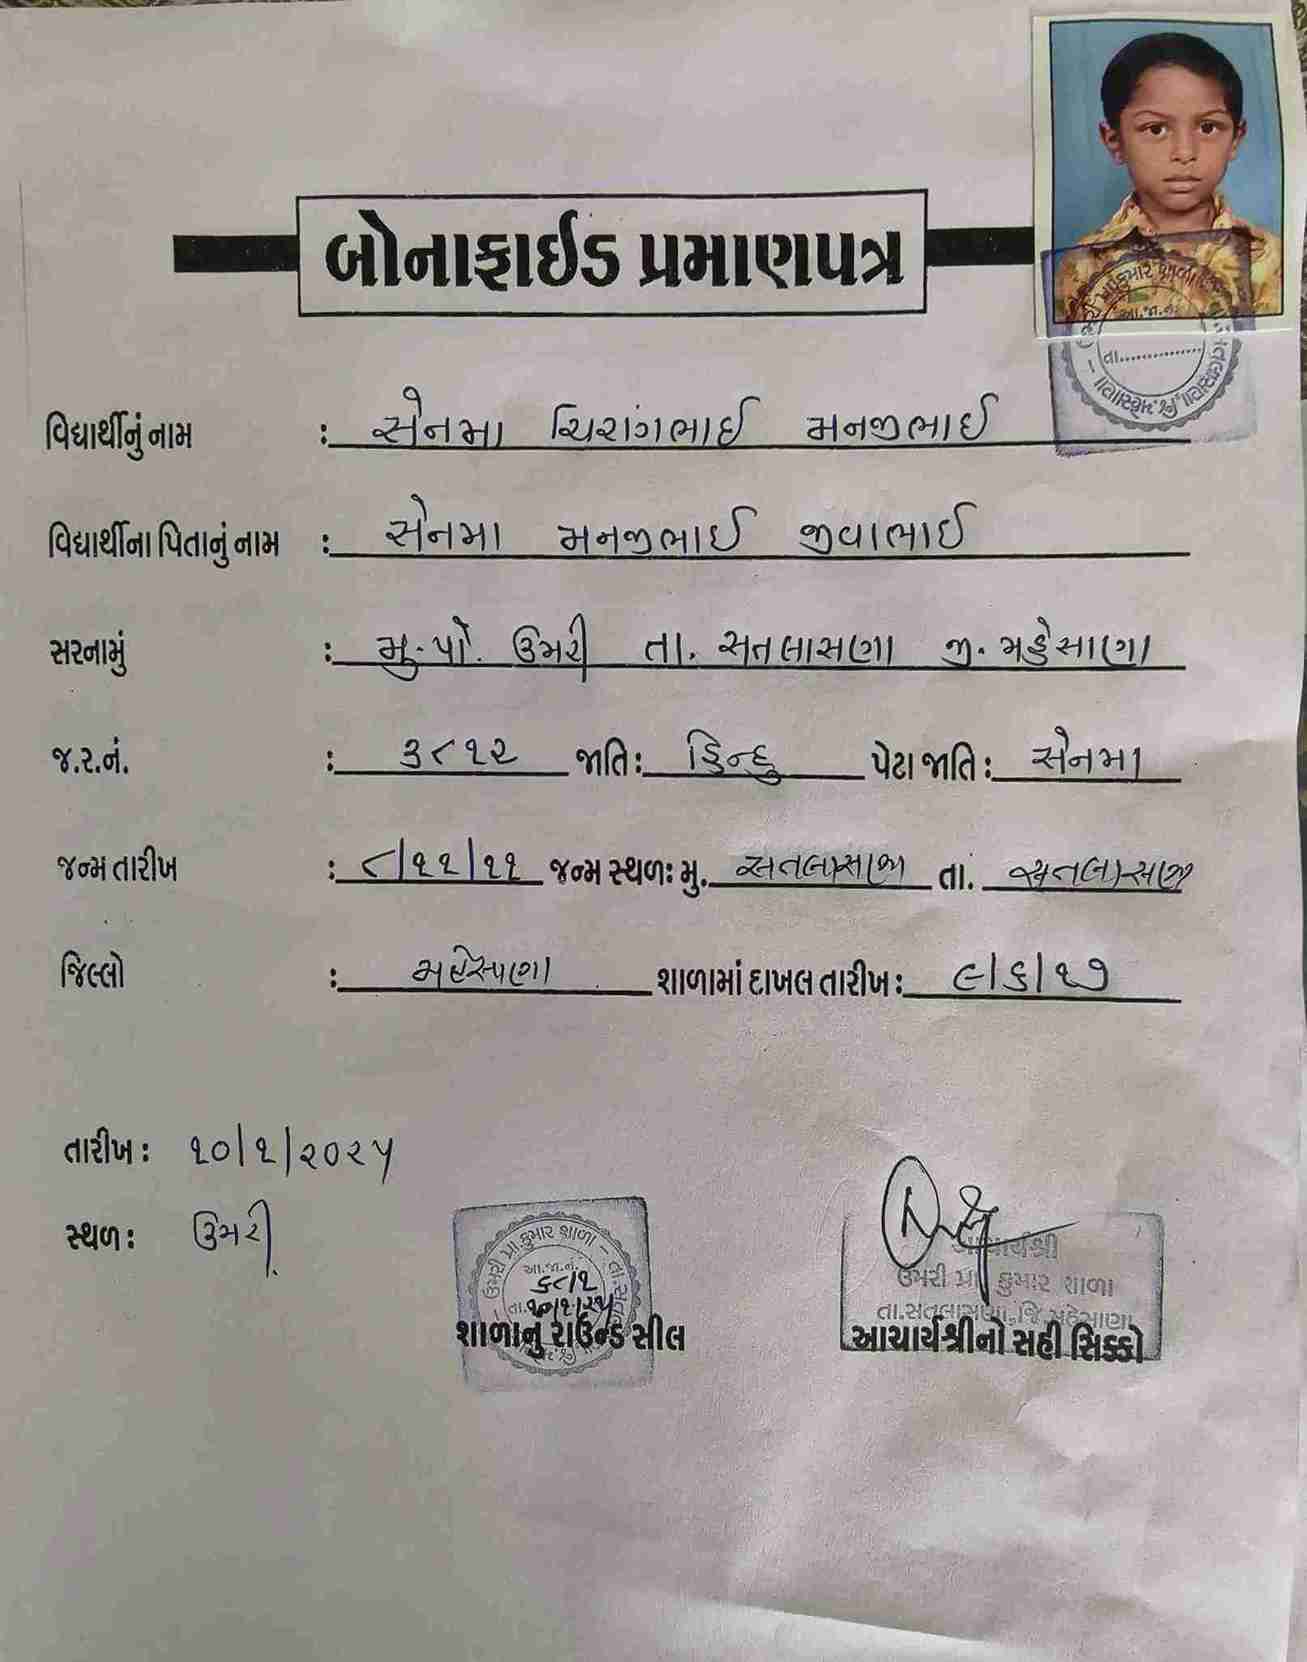 બોનાફાઈડ પ્રમાણપત્ર
ઉમરી પ્રા.કુમાર શાળા
આ.જા.નં.
તા..............
વિદ્યાર્થીનું નામ : સેનમા ચિરાગભાઈ મનજીભાઈ
વિદ્યાર્થીના પિતાનું નામ : સેનમા મનજીભાઈ જીવાભાઈ
સરનામું : મુ.પો. ઉમરી તા. સતલાસણા જી. મહેસાણા
જ.ર.નં. : ૩૮૧૨ જાતિ : હિન્દુ પેટા જાતિ : સેનમા
જન્મ તારીખ : ૮/૧૧/૧૧ જન્મ સ્થળ: મુ. સતલાસણા તા. સતલાસણા
જિલ્લો : મહેસાણા શાળામાં દાખલ તારીખ : ૯/૬/૧૭
તારીખ : ૧૦/૧/૨૦૨૫
સ્થળ : ઉમરી
ઉમરી પ્રા.કુમાર શાળા
આ.જા.નં.
તા.૧૦/૧/૨૫
શાળાનું રાઉન્ડ સીલ
આચાર્યશ્રી
ઉમરી પ્રા કુમાર શાળા
તા.સતલાસણા,જિ.મહેસાણા
આચાર્યશ્રીનો સહી સિક્કો